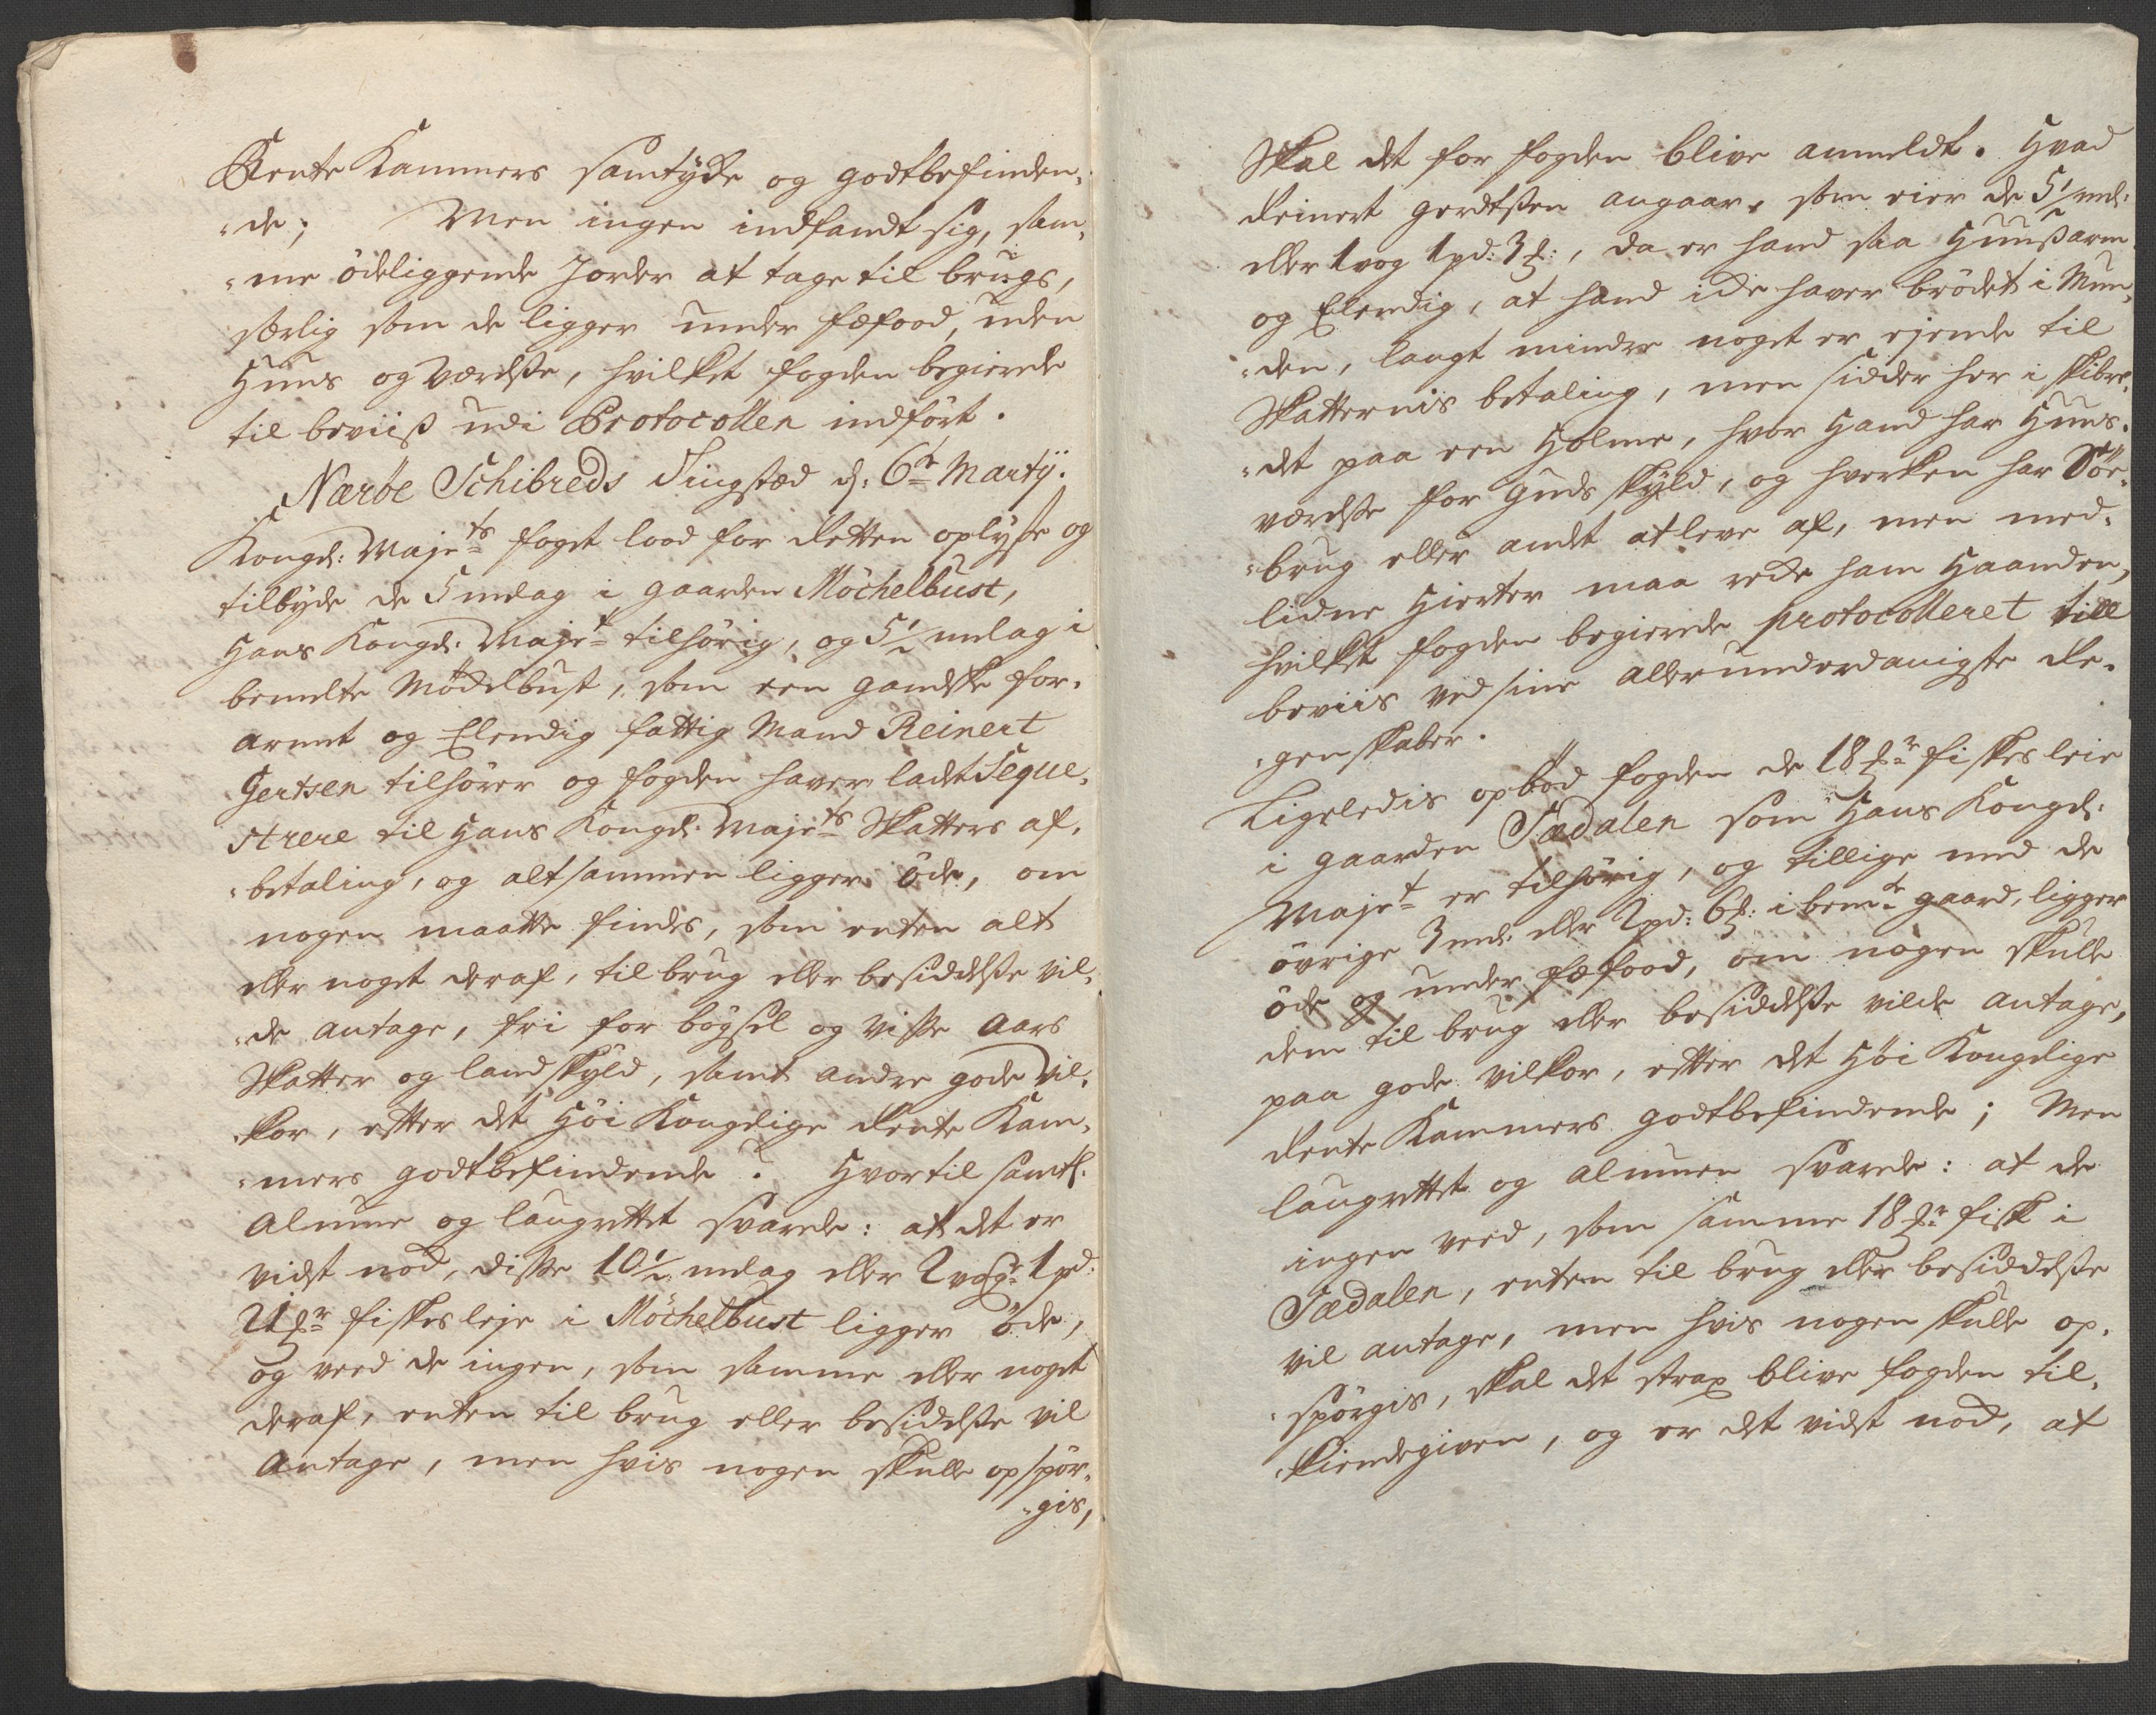 Rente Kammers samtÿcke og godtbefinden„
„de; Men ingen indfandt sig, sam„
„me ödeliggende Jorder at tage til brugs,
særlig som de ligger under fæfood, uden
Huus og værelse, hvilket fogden begierede
til beviiß udi Protocollen indfört.
Naröe Schibreds Tingstæd d: 6te Martÿ.
Kongl: Majets foget lood for Retten oplyse og
tilbÿde de 5 mælag i gaarden Möchelbust,
Hans Kongl: Majet tilhörig, og 5½ melag i
bemelte Möckelbust, som een gandske for„
armt og Elendig fattig Mand Reinert
Gertsen tilhörer og fogden haver ladt Seque„
strere til Hans Kongl: Majets Skatters af„
„betaling, og altsammen ligger öde, om
nogen maatte findes, som enten alt
eller noget deraf, til brug eller besiddelse vil„
„de antage, fri for böÿsel og visse Aars
Skatter og landskÿld, samt andre gode vil„
„kor, efter det Höi Kongelige Rente Kam„
„mers godtbefindende? Hvortil samtl:
Almue og laugrettet svarede: at det er
vidst nock, disse 10½ melag eller 2 voger 1 pd:
21 mr fiskes leje i Möchelbust ligger öde,
og veed de ingen, som samme eller noget
deraf, enten til brug eller besiddelse vil
Antage, men hvis nogen skulle opspör„
„gis,
Skal det for fogden blive anmeldt. Hvad
Reinert gerdtsen angaar, som eier de 5½ mel:
eller 1 vog 1 pd: 3 mr:, da er hand saa Huusarm
og Elendig, at hand icke haver brödet i Mun„
„den, langt mindre noget er ejende til
Skatternis betaling, men sidder her i skibre„
„det paa een Holme, hvor Hand har Huus„
værelse for guds skÿld, og hverken har Söe„
„brug eller andet at leve af, men med„
lidne Hierter maa recke ham Haanden,
hvilket fogden begierede protocolleret till
beviis ved sine allerunderdanigste Re„
„genskaber.
Ligeledis opböd fogden de 18 mr fiskes leie
i gaarden Sædalen som Hans Kongl:
Majet er tilhörig, og tillige med de
övrige 3 mel: eller 2 pd: 6 mr: i bemte gaard, ligger
öde og under fæfood, om nogen skulle
dem til brug eller besiddelse vilde antage,
paa gode vilkor, efter det Höi Kongelige
Rente Kammers godtbefindende; Men
laugrettet og almuen svarede: at de
ingen veed, som samme 18 mr fisk i
Sædalen, enten til brug eller besiddelse
vil antage, men hvis nogen skulle op„
„spörgis, skal det strax blive fogden til„
„kiendegiven, og er det vidst nock, at